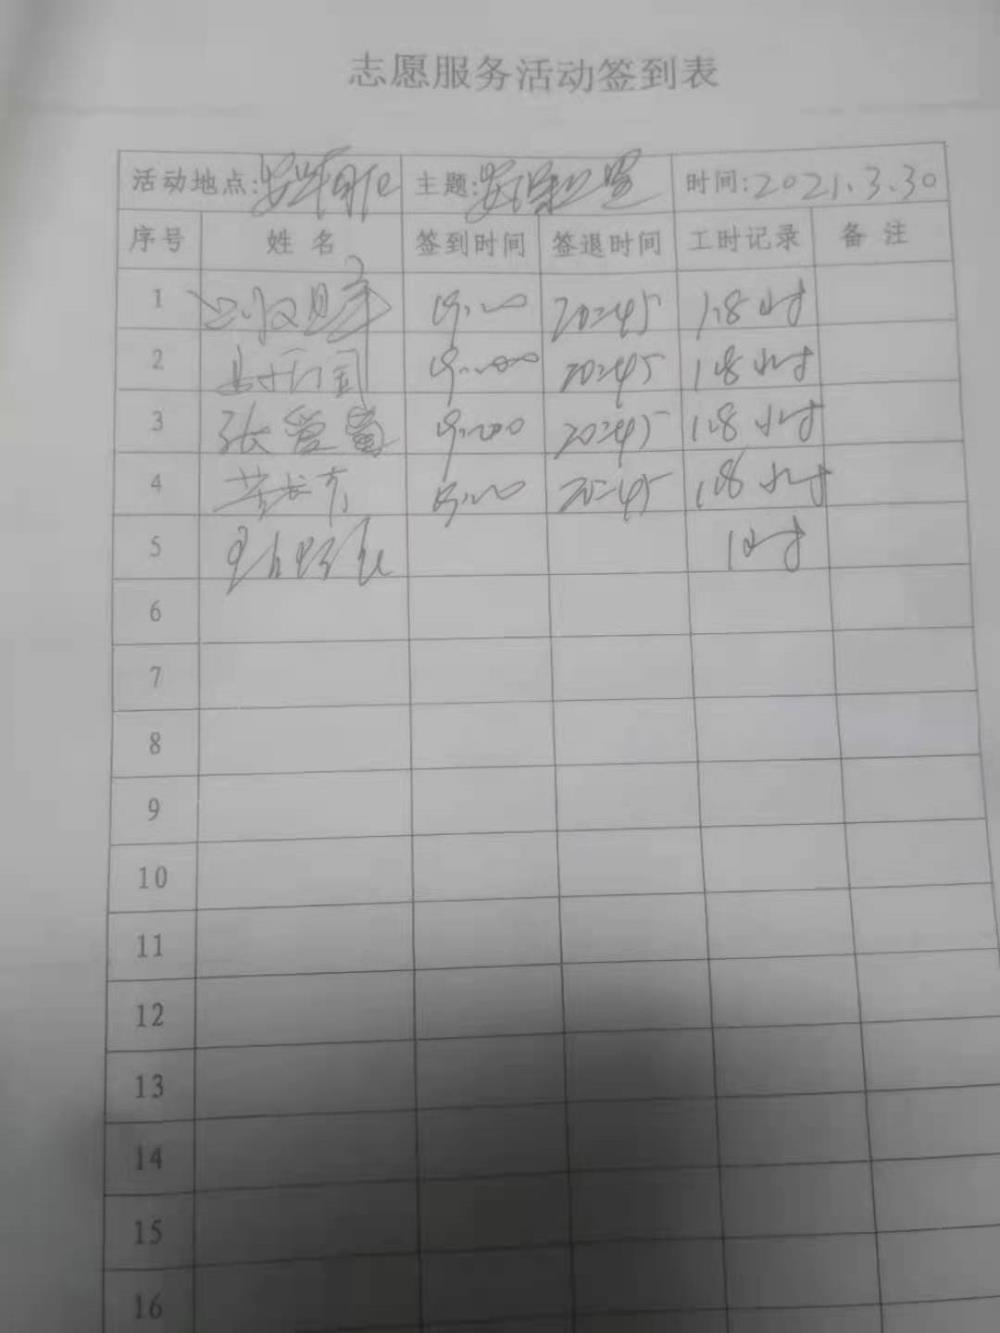 志愿服务活动签到表
活动地点: 主题: 时间:2021.3.30
序号 姓名 签到时间 签退时间 工时记录 备注
1 19:00 20:45 1.8小时
2 19:00 20:45 1.8小时
3 张爱 19:00 20:45 1.8小时
4 19:00 20:45 1.8小时
5 1小时
6
7
8
9
10
11
12
13
14
15
16